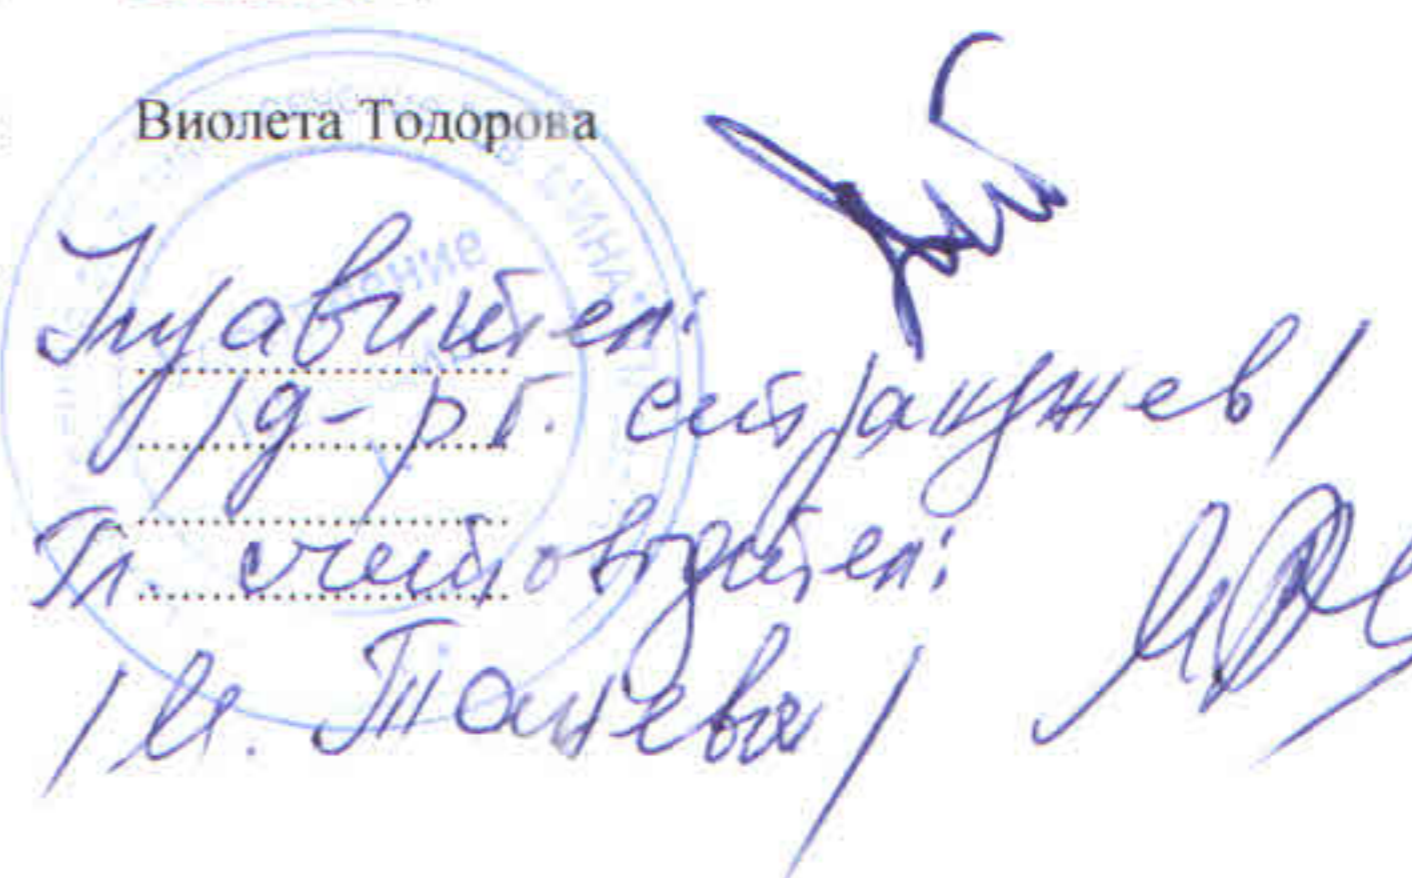 Виолета Тодорова
Управител:
/д-р Г.
Гл. счетоводител:
/И. Танева/